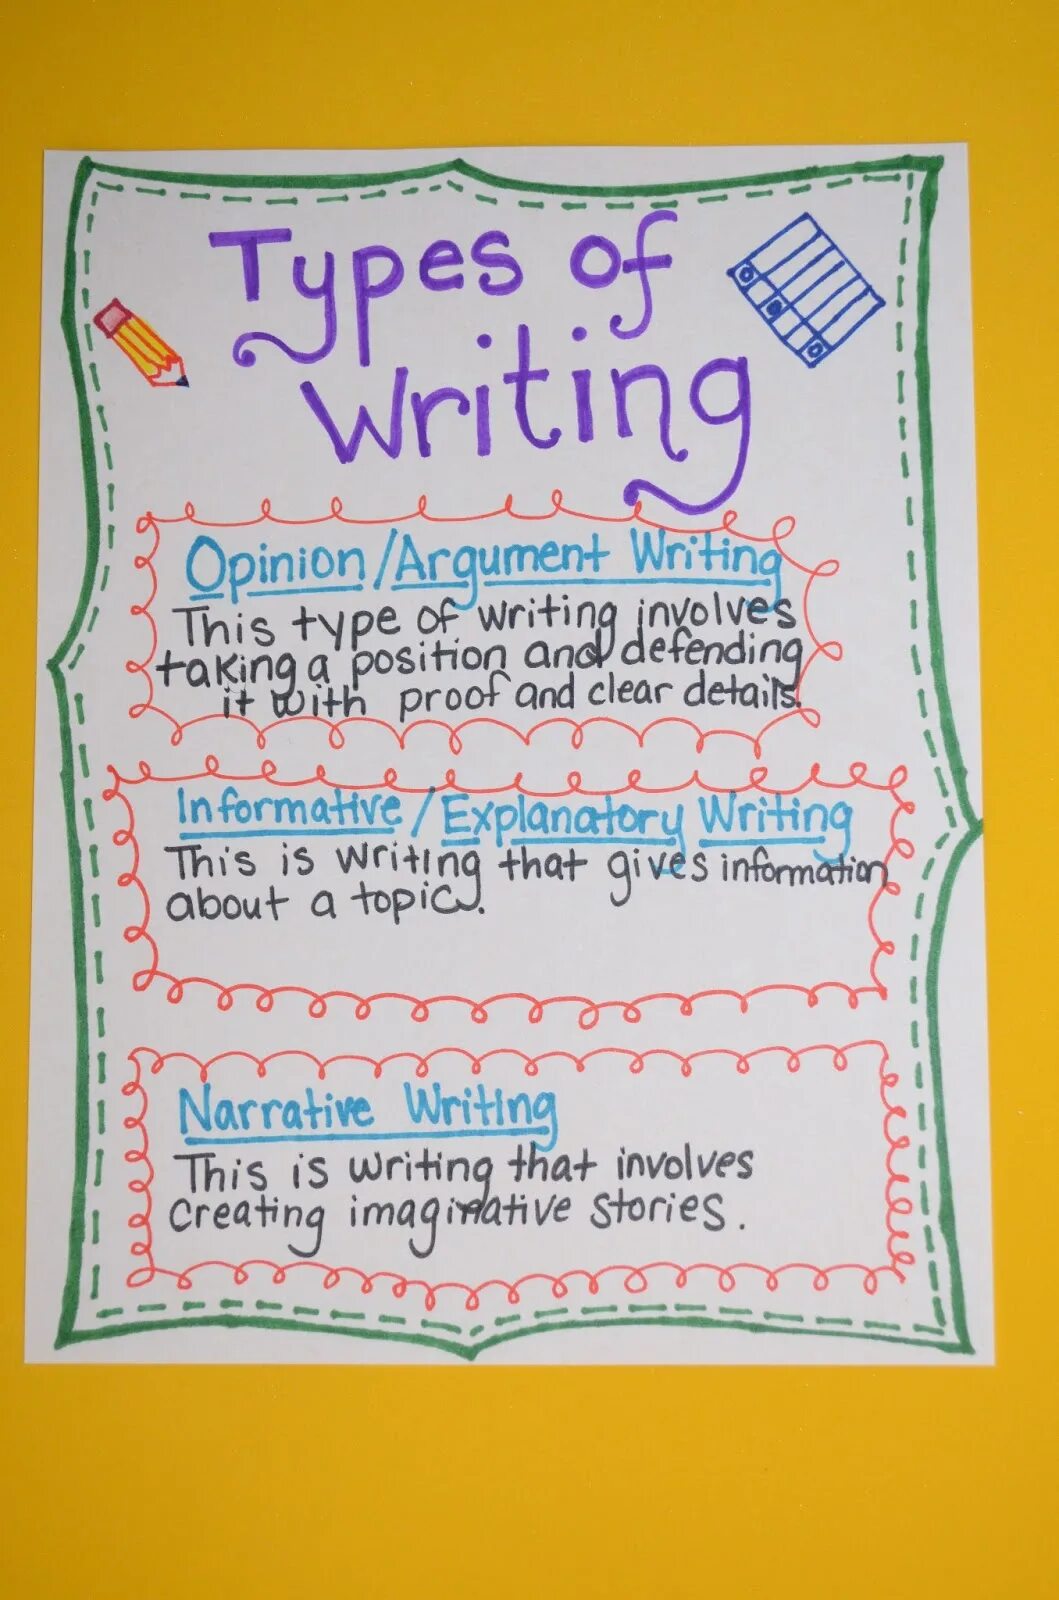 Types of
Writing
Opinion/Argument Writing
This type of writing involves
taking a position and defending
it with proof and clear details.
Informative/Explanatory Writing
This is writing that gives information
about a topic.
Narrative Writing
This is writing that involves
creating imaginative stories.